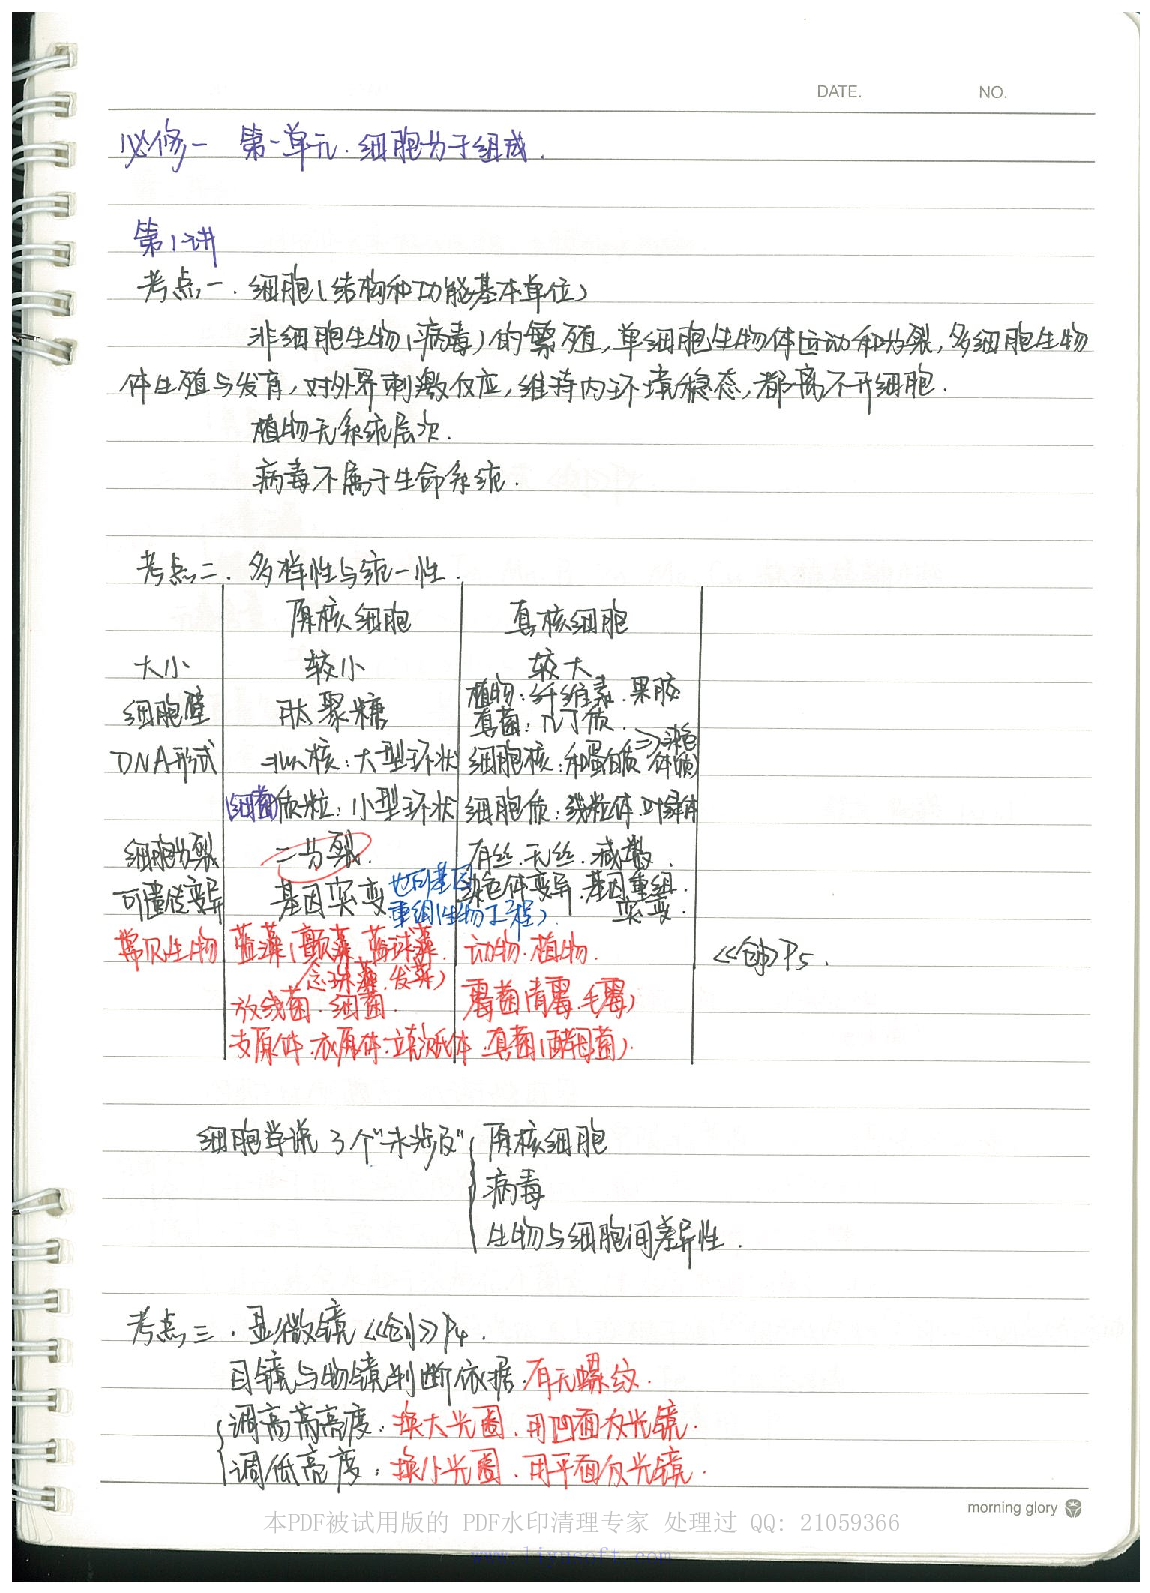 DATE.    NO.
必修一 第一单元. 细胞分子组成.
第1讲
考点一. 细胞(结构和功能基本单位)
非细胞生物(病毒)的繁殖, 单细胞生物体运动和分裂, 多细胞生物
体生殖与发育, 对外界刺激反应, 维持内环境稳态, 都离不开细胞.
植物无系统层次.
病毒不属于生命系统.
考点二. 多样性与统一性.
原核细胞 真核细胞
大小 较小 较大
细胞壁 肽聚糖 植物: 纤维素. 果胶
真菌: 几丁质.
DNA形式 拟核: 大型环状 细胞核: 和蛋白质 => 染色体(质)
(细菌)质粒: 小型环状 细胞质: 线粒体. 叶绿体
细胞分裂 二分裂. 有丝. 无丝. 减数.
可遗传变异 基因突变 也可基因重组(生物工程). 染色体变异. 基因重组. 突变.
常见生物 蓝藻(颤藻. 蓝球藻. 念珠藻. 发菜) 动物. 植物. 《创》P5.
放线菌. 细菌. 霉菌(青霉. 毛霉)
支原体. 衣原体. 立克次氏体 真菌(酵母菌).
细胞学说 3个"未涉及" { 原核细胞
病毒
生物与细胞间差异性.
考点三. 显微镜《创》P4.
目镜与物镜判断依据. 有无螺纹.
调高亮度. 换大光圈. 用凹面反光镜.
调低亮度. 换小光圈. 用平面反光镜.
morning glory
本PDF被试用版的 PDF水印清理专家 处理过 QQ: 21059366